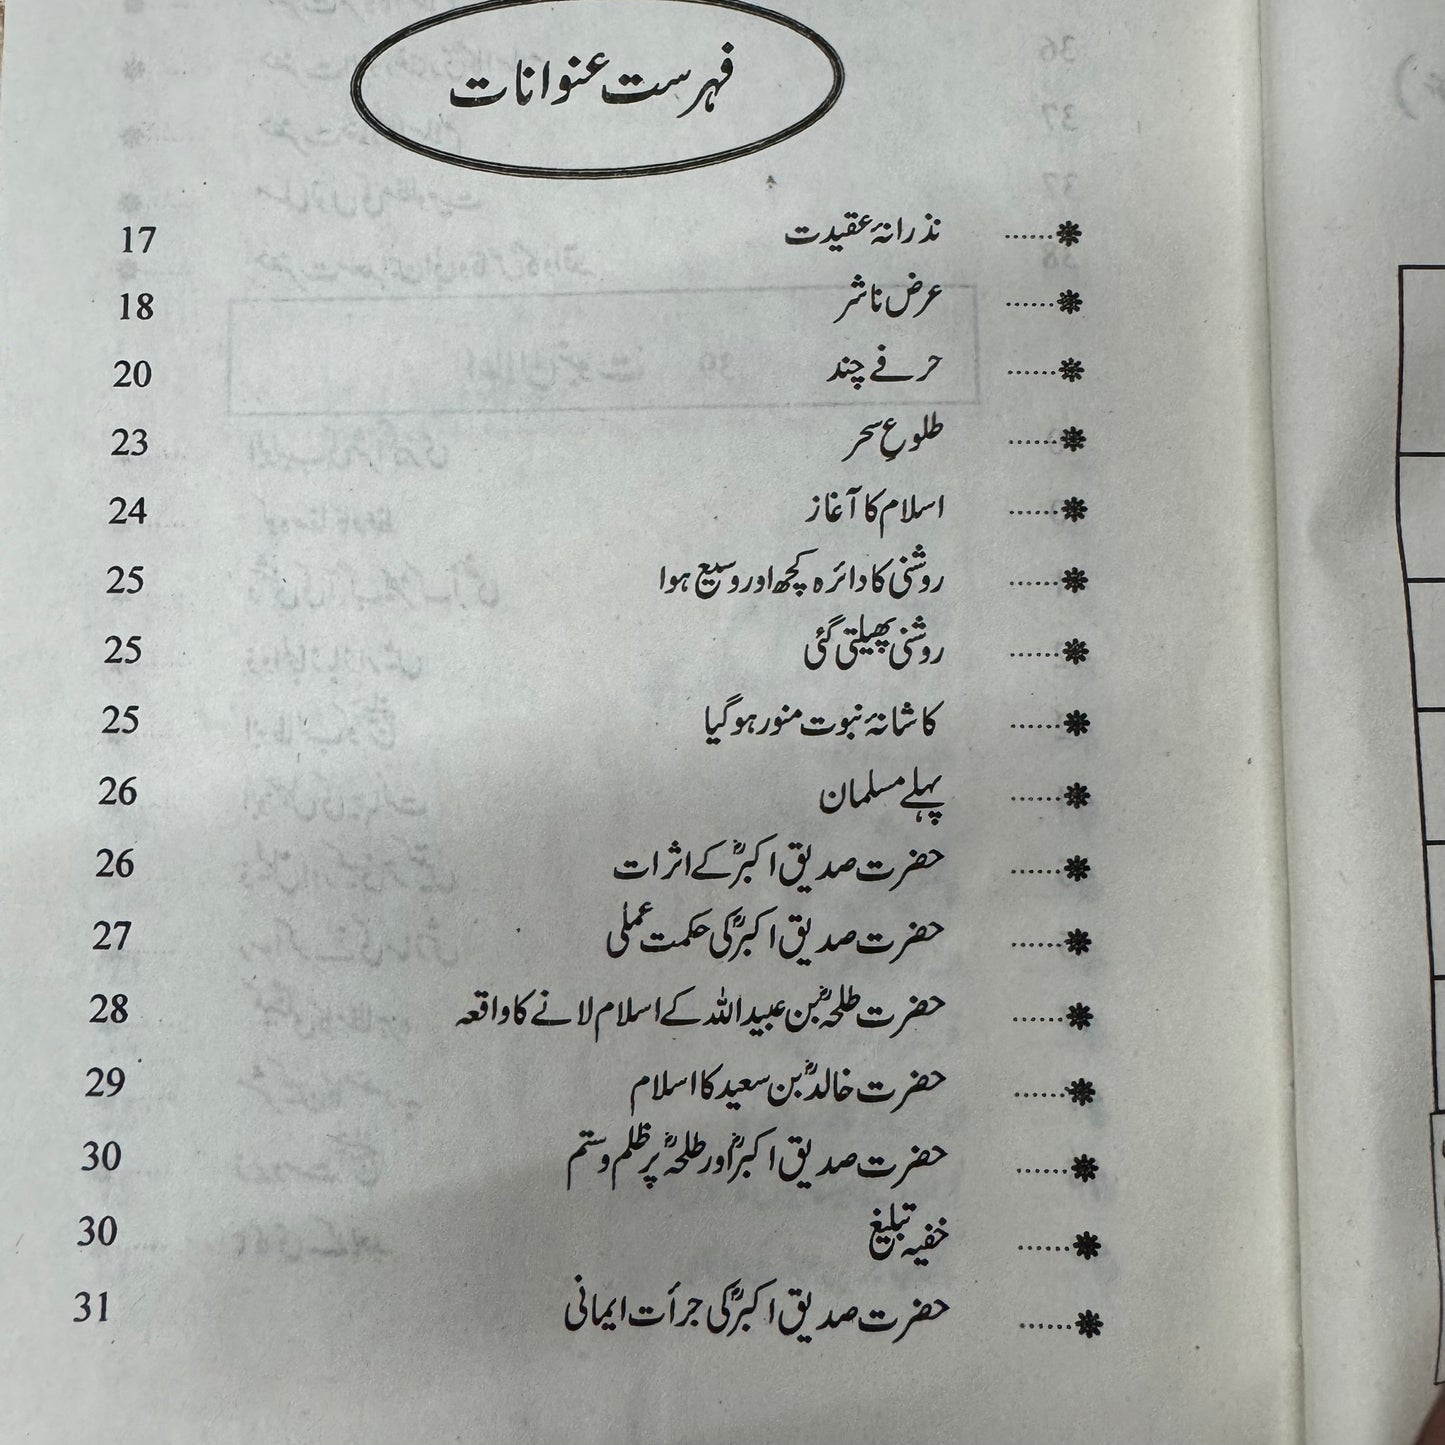 فہرست عنوانات
❋...... نذرانۂ عقیدت 17
❋...... عرض ناشر 18
❋...... حرفے چند 20
❋...... طلوعِ سحر 23
❋...... اسلام کا آغاز 24
❋...... روشنی کا دائرہ کچھ اور وسیع ہوا 25
❋...... روشنی پھیلتی گئی 25
❋...... کاشانۂ نبوت منور ہو گیا 25
❋...... پہلے مسلمان 26
❋...... حضرت صدیق اکبرؓ کے اثرات 26
❋...... حضرت صدیق اکبرؓ کی حکمت عملی 27
❋...... حضرت طلحہؓ بن عبید اللہ کے اسلام لانے کا واقعہ 28
❋...... حضرت خالدؓ بن سعید کا اسلام 29
❋...... حضرت صدیق اکبرؓ اور طلحہؓ پر ظلم و ستم 30
❋...... خفیہ تبلیغ 30
❋...... حضرت صدیق اکبرؓ کی جرأت ایمانی 31